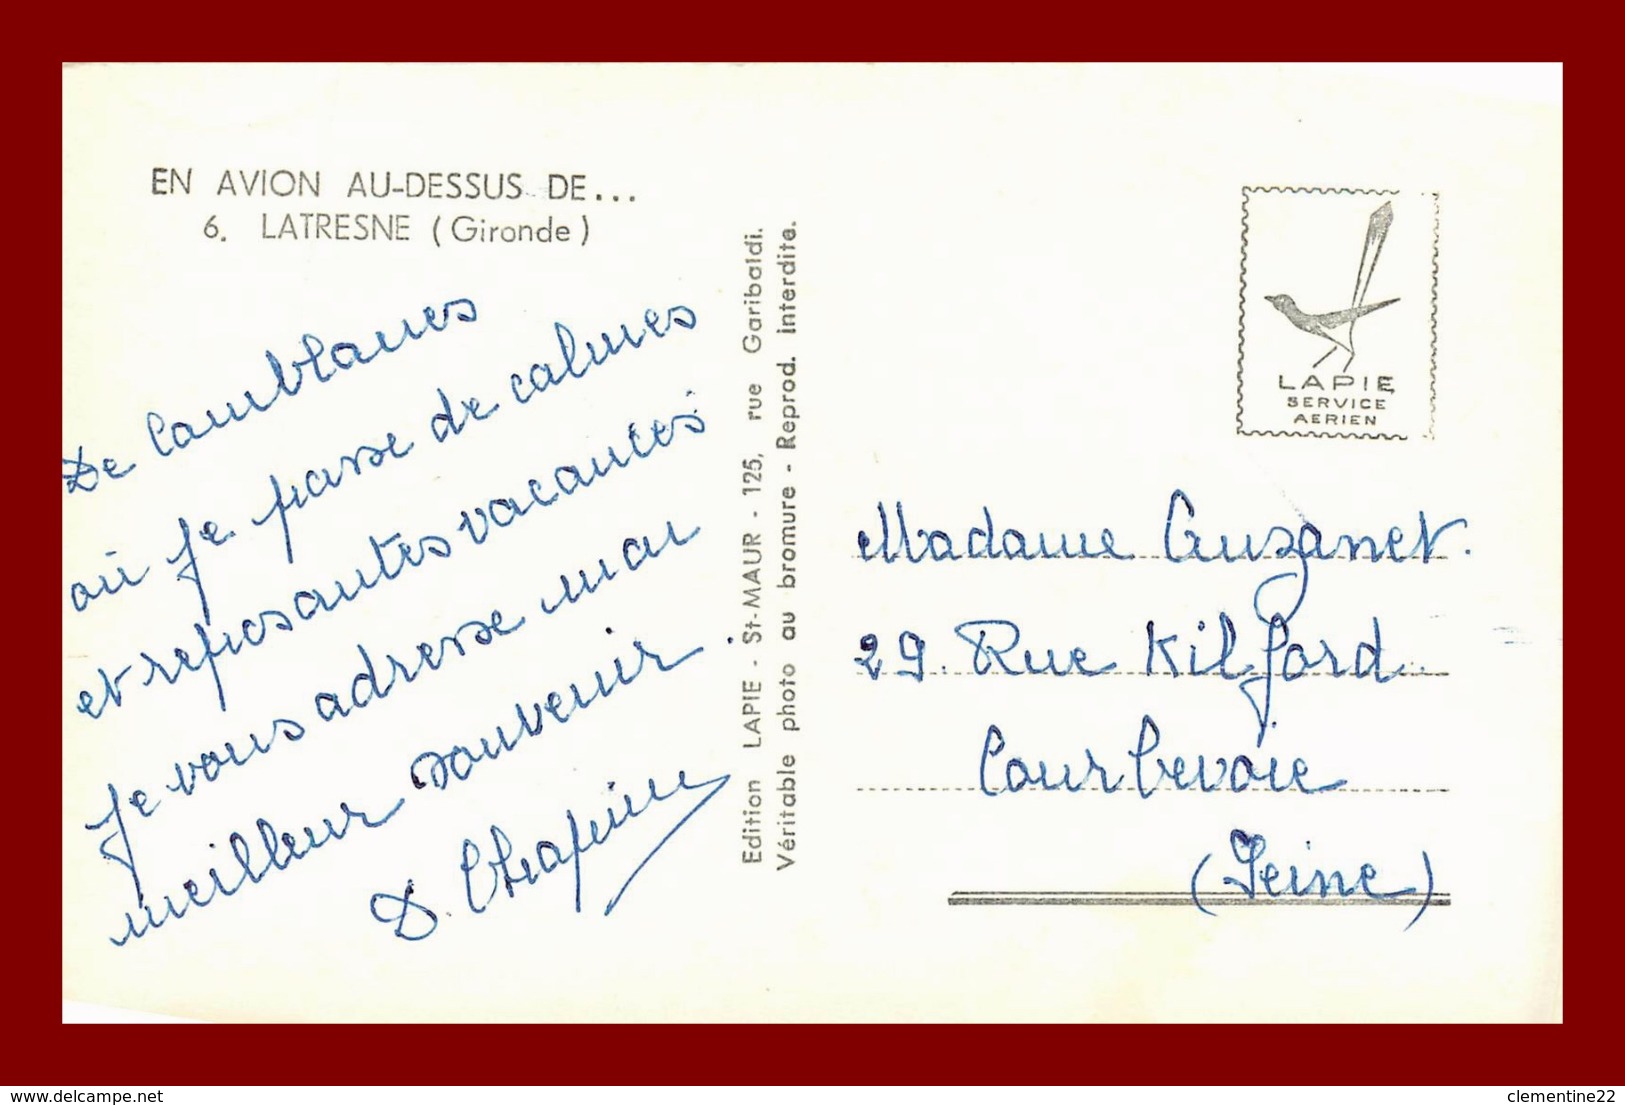 EN AVION AU-DESSUS DE...
6. LATRESNE (Gironde)
De Camblanes
où je passe de calmes
et reposantes vacances
je vous adresse mon
meilleur souvenir.
D. Chapin
Edition LAPIE - St-MAUR - 125, rue Garibaldi.
Véritable photo au bromure - Reprod. Interdite.
LAPIE
SERVICE
AERIEN
Madame Cruzanet.
29. Rue Kilford
Courbevoie
(Seine)
delcampe.net
clementine22